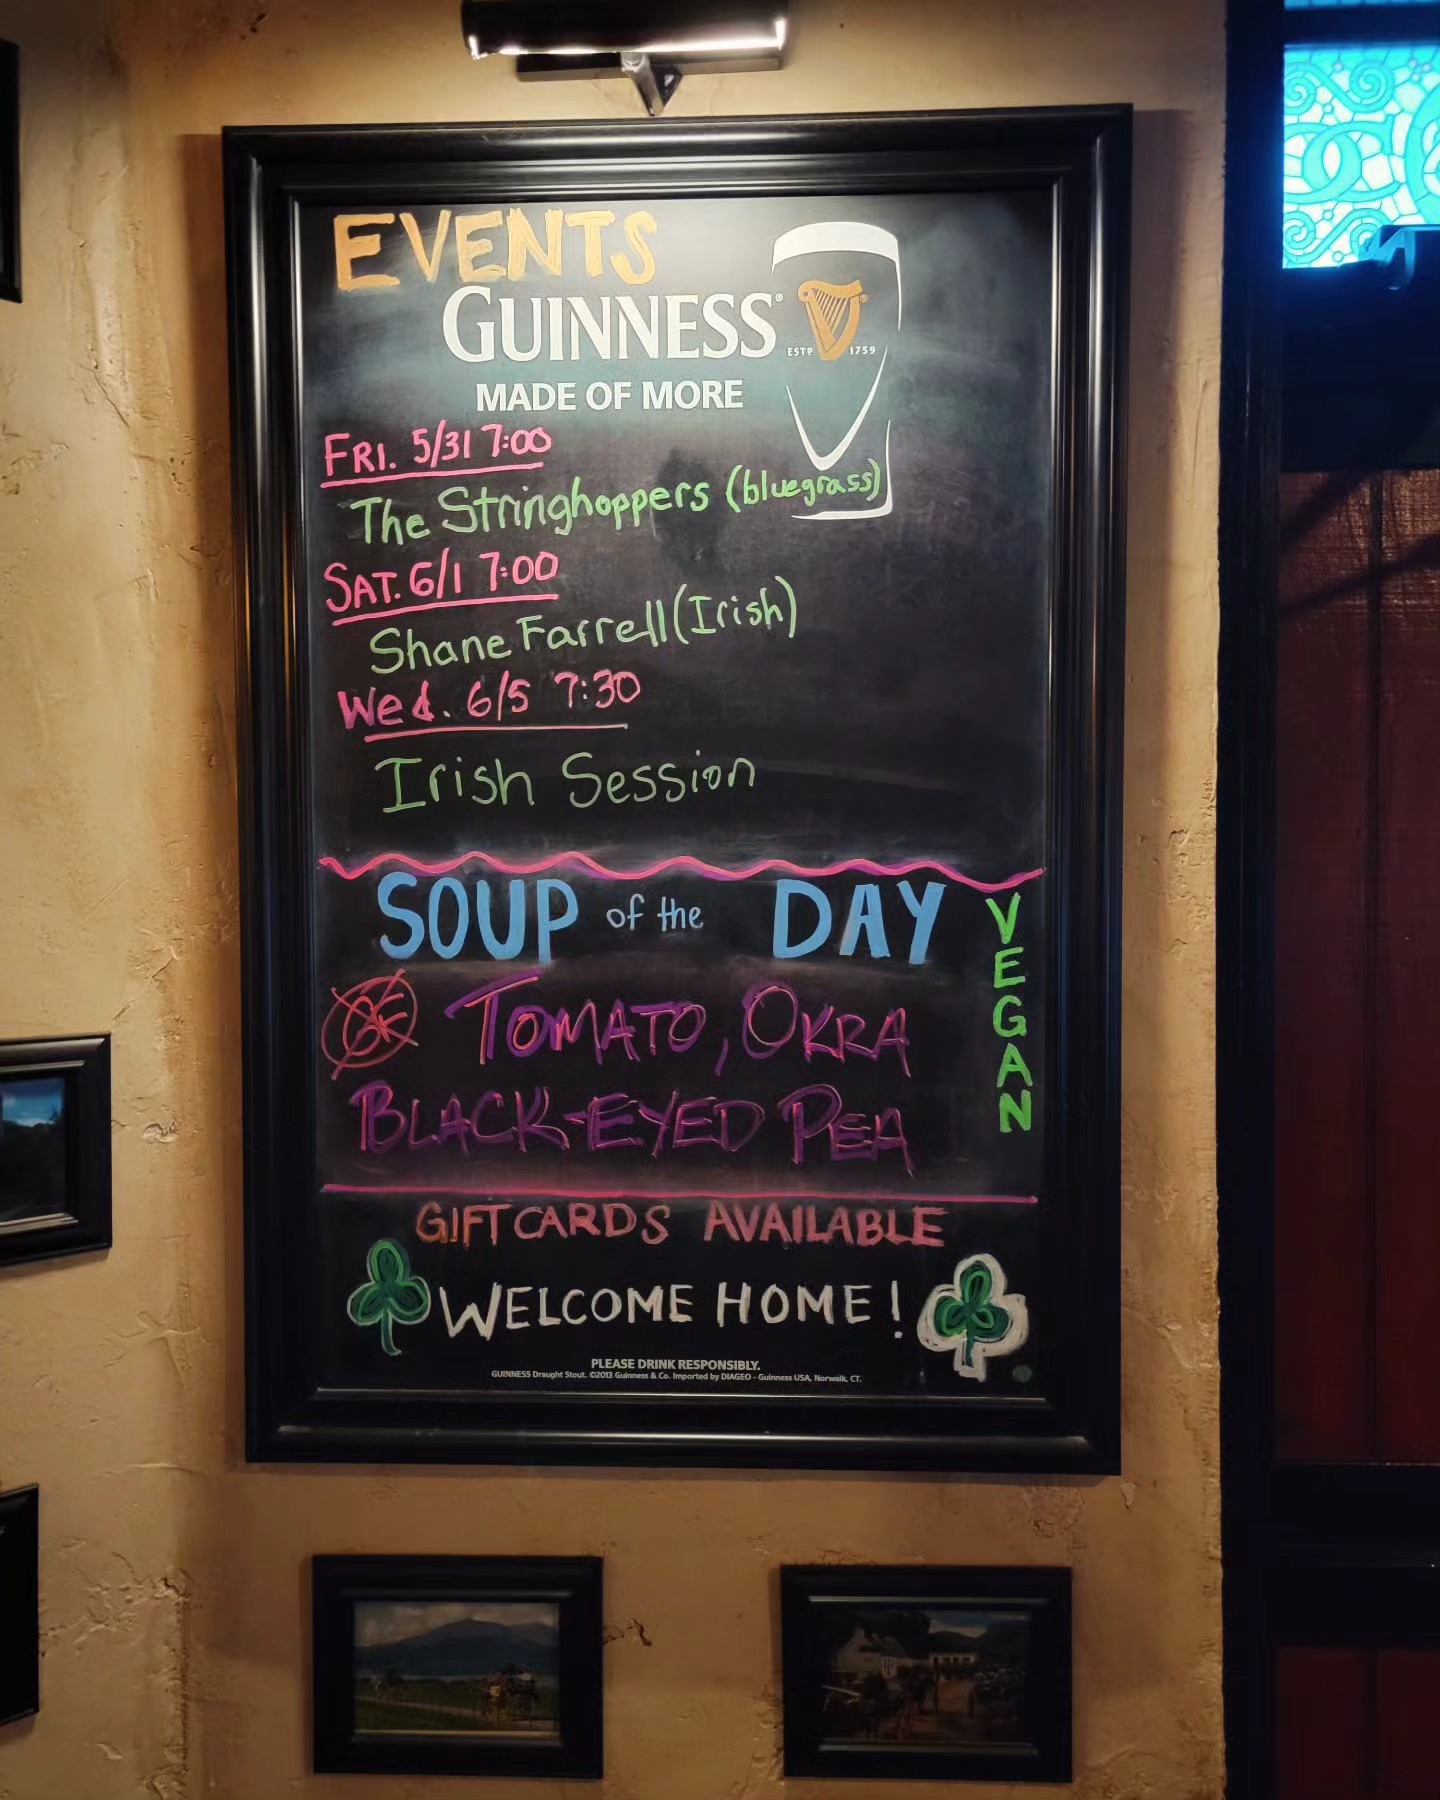 EVENTS
GUINNESS®
ESTD 1759
MADE OF MORE
FRI. 5/31 7:00
The Stringhoppers (bluegrass)
SAT. 6/1 7:00
Shane Farrell (Irish)
Wed. 6/5 7:30
Irish Session
SOUP of the DAY
VEGAN
TOMATO, OKRA
BLACK-EYED PEA
GIFT CARDS AVAILABLE
WELCOME HOME!
PLEASE DRINK RESPONSIBLY.
GUINNESS Draught Stout. ©2013 Guinness & Co. Imported by DIAGEO - Guinness USA, Norwalk, CT.